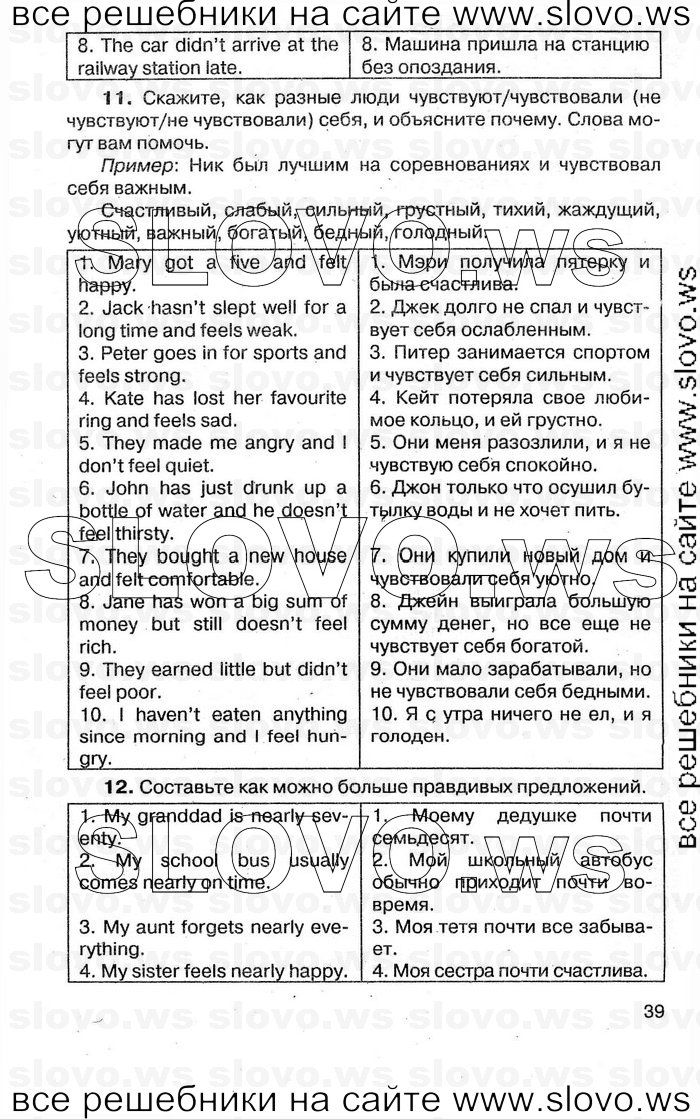 все решебники на сайте www.slovo.ws
8. The car didn't arrive at the
railway station late.
8. Машина пришла на станцию
без опоздания.
11. Скажите, как разные люди чувствуют/чувствовали (не
чувствуют/не чувствовали) себя, и объясните почему. Слова мо-
гут вам помочь.
Пример: Ник был лучшим на соревнованиях и чувствовал
себя важным.
Счастливый, слабый, сильный, грустный, тихий, жаждущий,
уютный, важный, богатый, бедный, голодный.
1. Mary got a five and felt
happy.
1. Мэри получила пятерку и
была счастлива.
2. Jack hasn't slept well for a
long time and feels weak.
2. Джек долго не спал и чувст-
вует себя ослабленным.
3. Peter goes in for sports and
feels strong.
3. Питер занимается спортом
и чувствует себя сильным.
4. Kate has lost her favourite
ring and feels sad.
4. Кейт потеряла свое люби-
мое кольцо, и ей грустно.
5. They made me angry and I
don't feel quiet.
5. Они меня разозлили, и я не
чувствую себя спокойно.
6. John has just drunk up a
bottle of water and he doesn't
feel thirsty.
6. Джон только что осушил бу-
тылку воды и не хочет пить.
7. They bought a new house
and felt comfortable.
7. Они купили новый дом и
чувствовали себя уютно.
8. Jane has won a big sum of
money but still doesn't feel
rich.
8. Джейн выиграла большую
сумму денег, но все еще не
чувствует себя богатой.
9. They earned little but didn't
feel poor.
9. Они мало зарабатывали, но
не чувствовали себя бедными.
10. I haven't eaten anything
since morning and I feel hun-
gry.
10. Я с утра ничего не ел, и я
голоден.
12. Составьте как можно больше правдивых предложений.
1. My granddad is nearly sev-
enty.
1. Моему дедушке почти
семьдесят.
2. My school bus usually
comes nearly on time.
2. Мой школьный автобус
обычно приходит почти во-
время.
3. My aunt forgets nearly eve-
rything.
3. Моя тетя почти все забыва-
ет.
4. My sister feels nearly happy.
4. Моя сестра почти счастлива.
39
SLOVO.ws
SLOVO.ws
SLOVO.ws
все решебники на сайте www.slovo.ws
все решебники на сайте www.slovo.ws